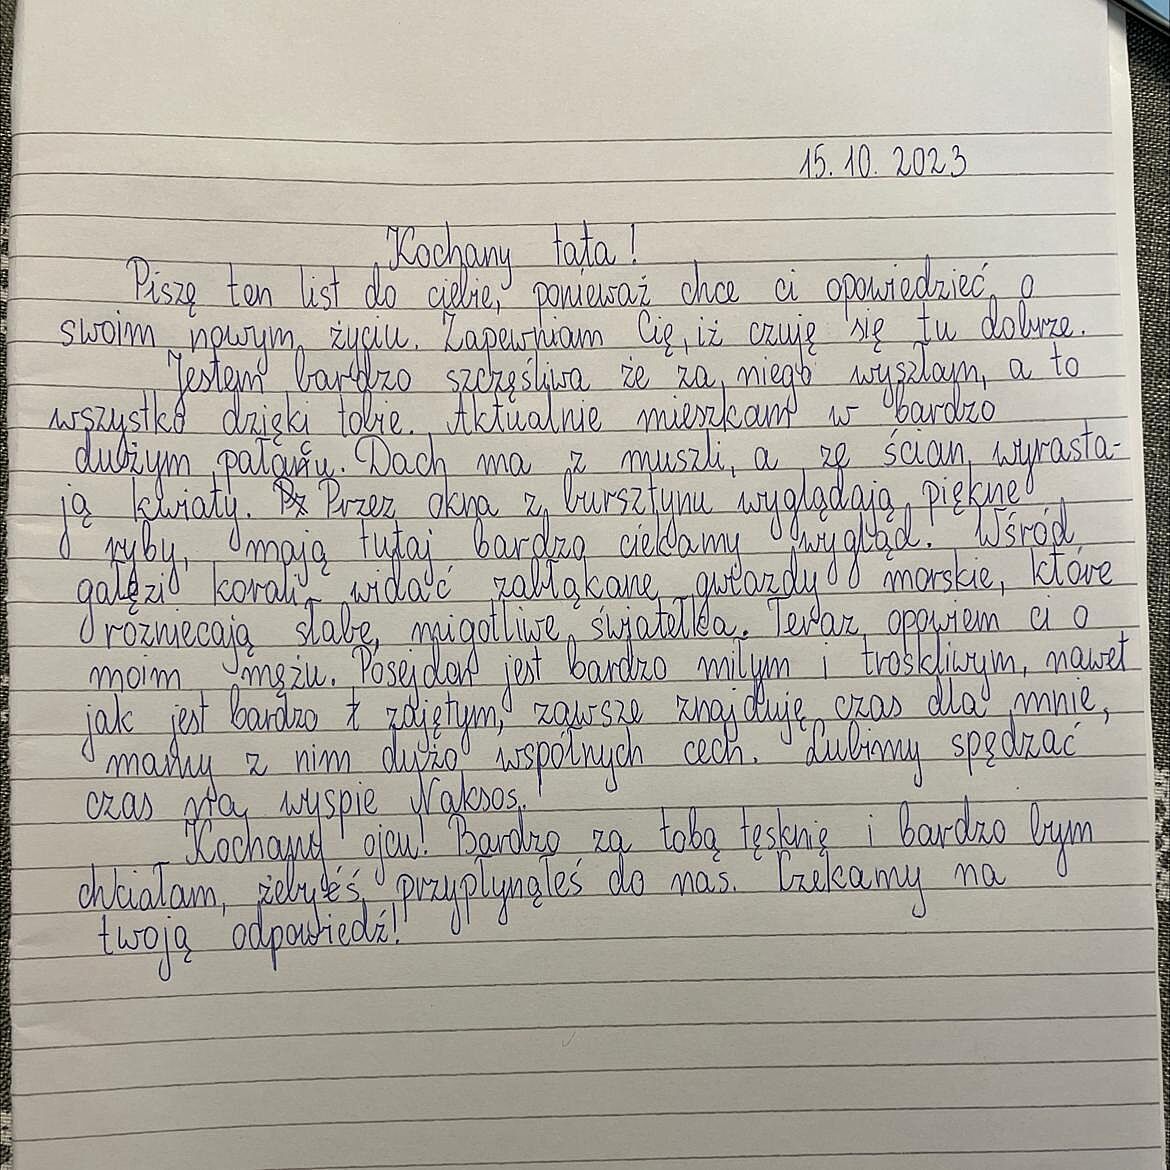 15.10.2023
Kochany tata!
Piszę ten list do ciebie, ponieważ chce ci opowiedzieć o
swoim nowym życiu. Zapewniam Cię, iż czuję się tu dobrze.
Jestem bardzo szczęśliwa że za niego wyszłam, a to
wszystko dzięki tobie. Aktualnie mieszkam w bardzo
dużym pałacu. Dach ma z muszli, a ze ścian wyrasta-
ją kwiaty. Przez okna z bursztynu wyglądają piękne
ryby, mają tutaj bardzo ciekawy wygląd. Wśród
gałęzi korali widać zabłąkane gwiazdy morskie, które
rozniecają słabe, migotliwe światełka. Teraz opowiem ci o
moim mężu. Posejdon jest bardzo miłym i troskliwym, nawet
jak jest bardzo zajętym, zawsze znajduję czas dla mnie,
mamy z nim dużo wspólnych cech. Lubimy spędzać
czas na wyspie Naksos.
Kochany ojcu! Bardzo za tobą tęsknię i bardzo bym
chciałam, żebyś przypłynąłeś do nas. Czekamy na
twoją odpowiedź!